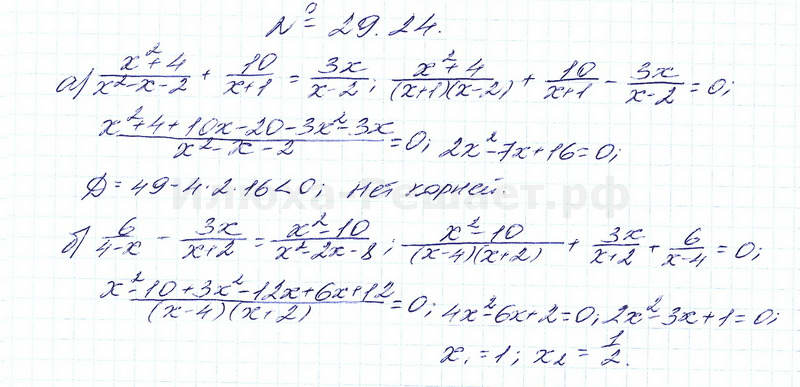 № 29.24.
а) (x²+4)/(x²-x-2) + 10/(x+1) = 3x/(x-2); (x²+4)/((x+1)(x-2)) + 10/(x+1) - 3x/(x-2) = 0;
(x²+4+10x-20-3x²-3x)/(x²-x-2) = 0; 2x²-7x+16=0;
Д = 49-4·2·16<0; Нет корней.
Илюха-Решает.рф
б) 6/(4-x) - 3x/(x+2) = (x²-10)/(x²-2x-8); (x²-10)/((x-4)(x+2)) + 3x/(x+2) + 6/(x-4) = 0;
(x²-10+3x²-12x+6x+12)/((x-4)(x+2)) = 0; 4x²-6x+2=0; 2x²-3x+1=0;
x₁=1; x₂=1/2.